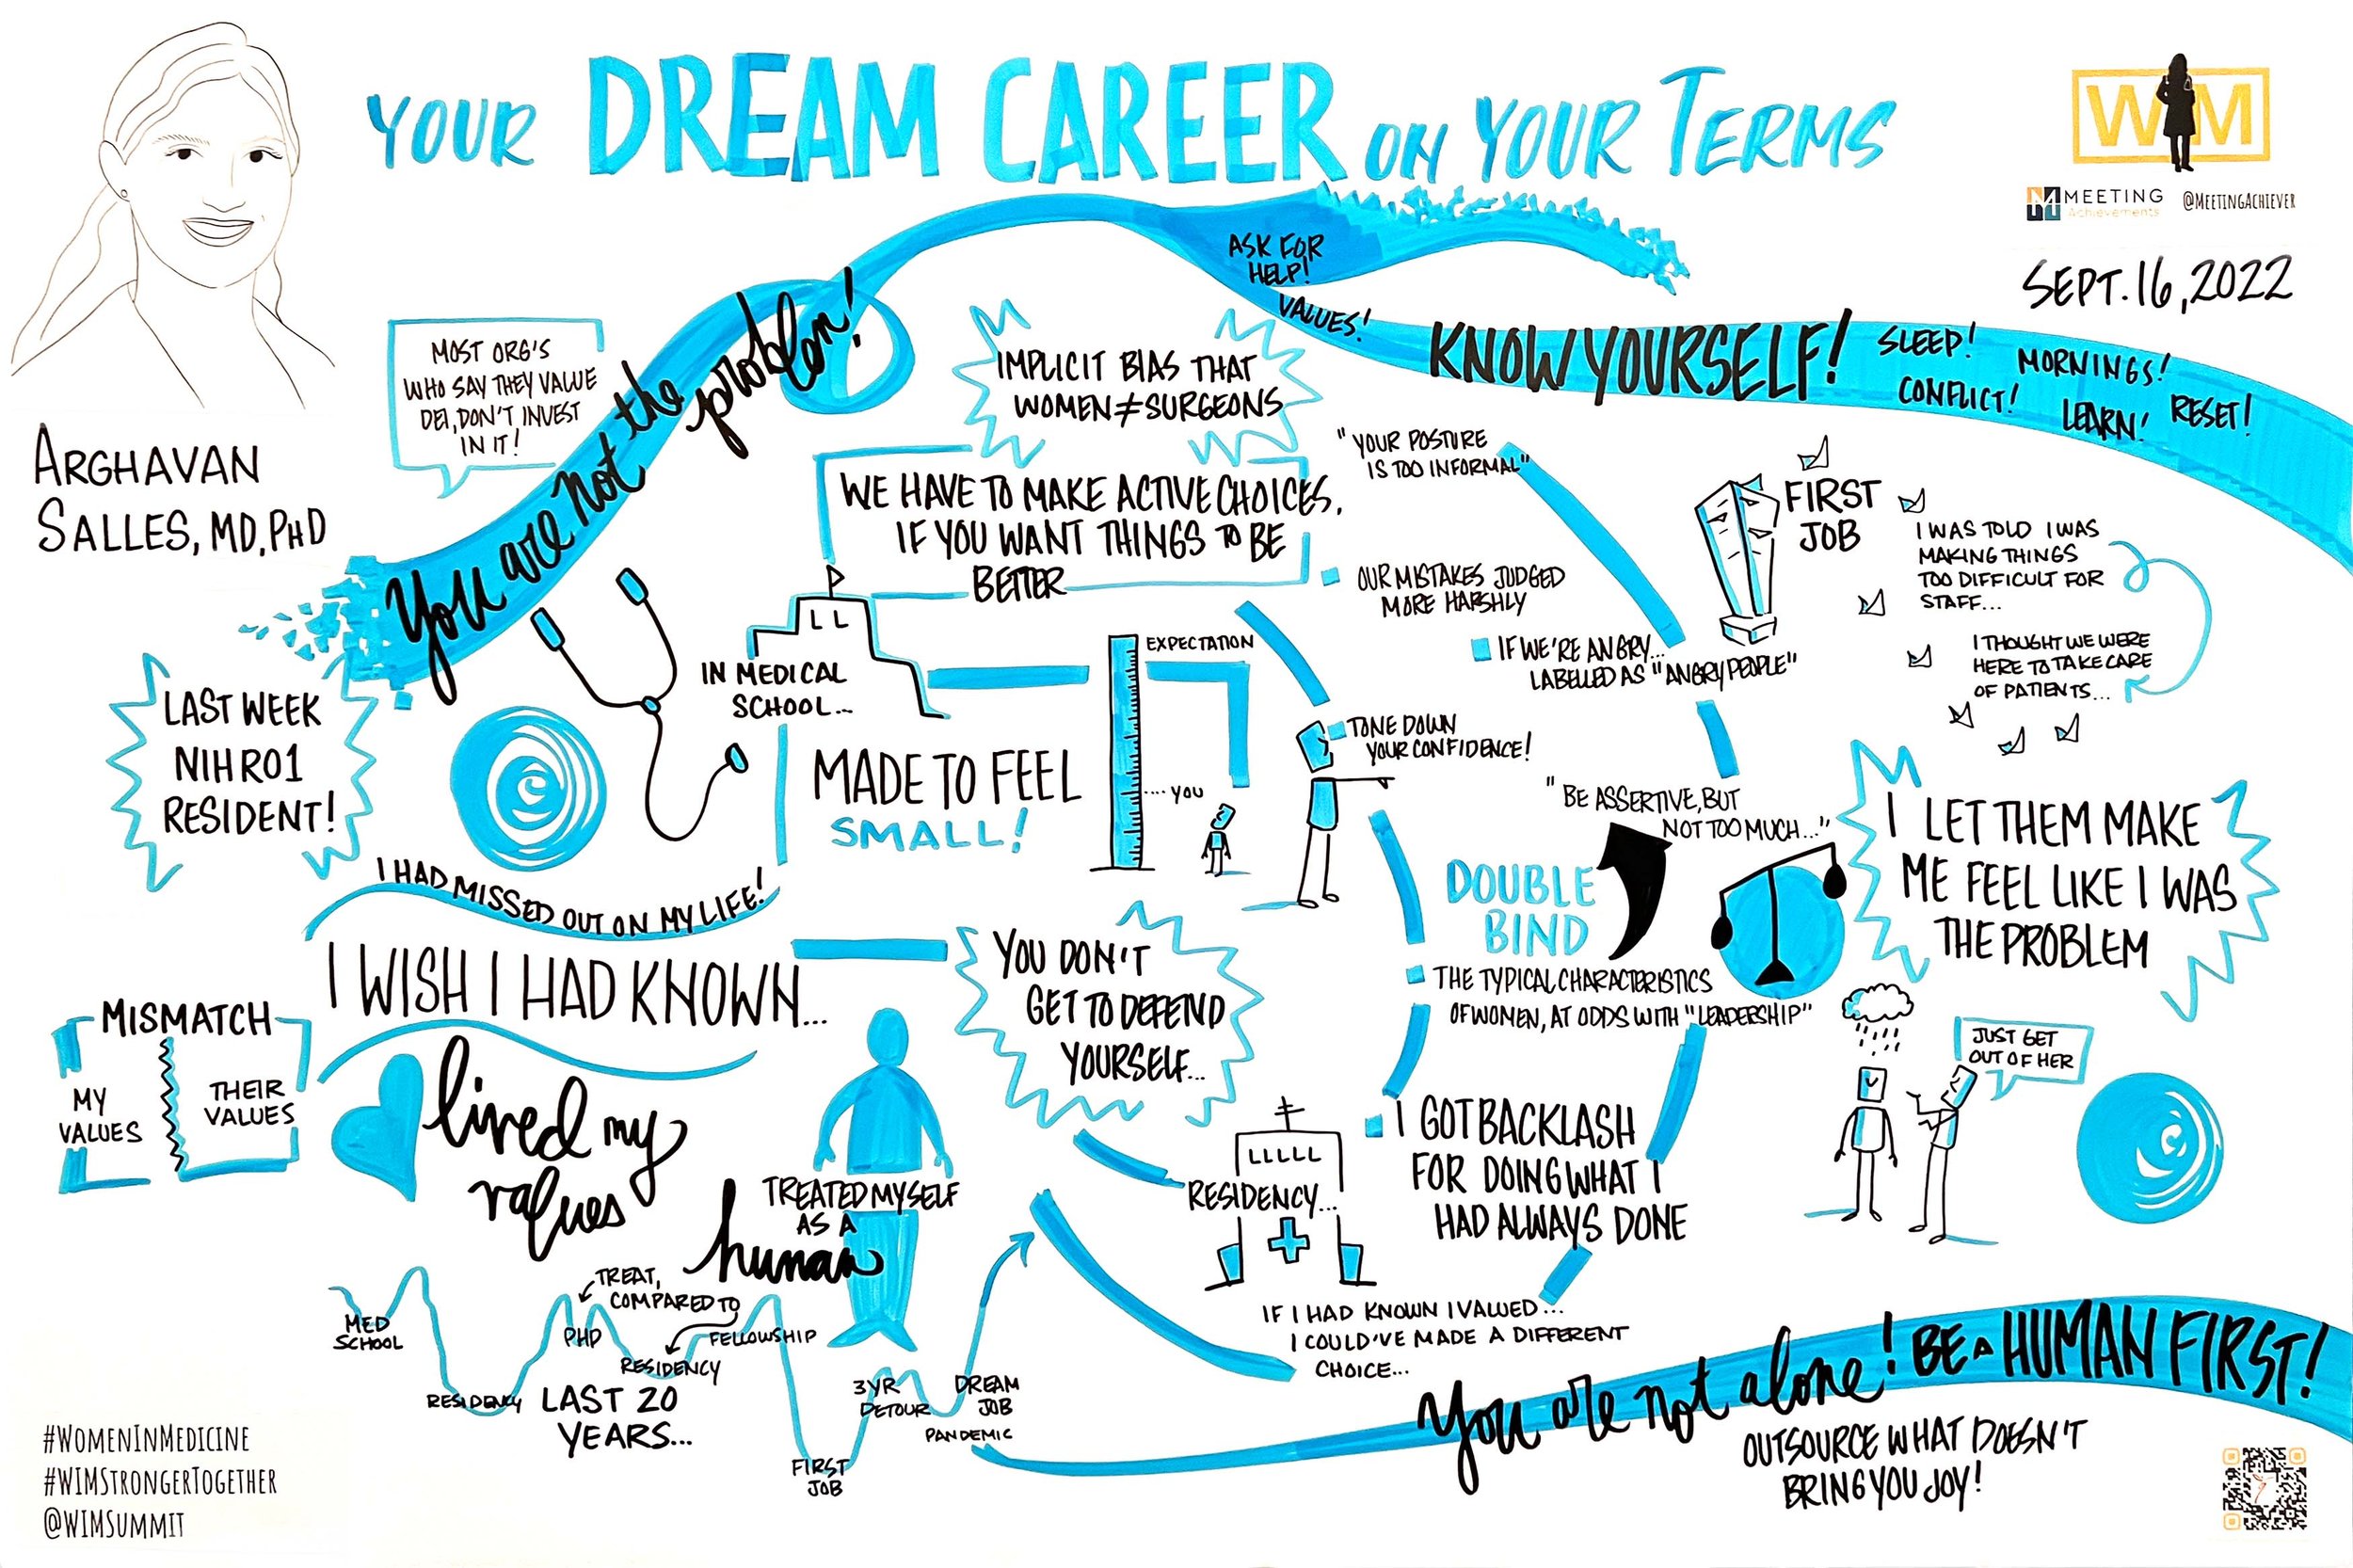 YOUR DREAM CAREER ON YOUR TERMS
WIM
MEETING
Achievements
@MEETINGACHIEVER
SEPT. 16, 2022
ARGHAVAN
SALLES, MD, PHD
MOST ORG'S
WHO SAY THEY VALUE
DEI, DON'T INVEST
IN IT!
You are not the problem!
ASK FOR
HELP!
VALUES!
KNOW YOURSELF!
SLEEP!
CONFLICT!
MORNINGS!
LEARN!
RESET!
IMPLICIT BIAS THAT
WOMEN ≠ SURGEONS
WE HAVE TO MAKE ACTIVE CHOICES,
IF YOU WANT THINGS TO BE
BETTER
"YOUR POSTURE
IS TOO INFORMAL"
OUR MISTAKES JUDGED
MORE HARSHLY
IF WE'RE ANGRY...
LABELLED AS "ANGRY PEOPLE"
FIRST
JOB
I WAS TOLD I WAS
MAKING THINGS
TOO DIFFICULT FOR
STAFF...
I THOUGHT WE WERE
HERE TO TAKE CARE
OF PATIENTS...
LAST WEEK
NIH R01
RESIDENT!
IN MEDICAL
SCHOOL...
MADE TO FEEL
SMALL!
EXPECTATION
.... YOU
TONE DOWN
YOUR CONFIDENCE!
"BE ASSERTIVE, BUT
NOT TOO MUCH..."
DOUBLE
BIND
THE TYPICAL CHARACTERISTICS
OF WOMEN, AT ODDS WITH "LEADERSHIP"
I LET THEM MAKE
ME FEEL LIKE I WAS
THE PROBLEM
JUST GET
OUT OF HER
I HAD MISSED OUT ON MY LIFE!
I WISH I HAD KNOWN...
MISMATCH
MY
VALUES
THEIR
VALUES
lived my
values
TREATED MYSELF
AS A
human
YOU DON'T
GET TO DEFEND
YOURSELF...
RESIDENCY...
I GOT BACKLASH
FOR DOING WHAT I
HAD ALWAYS DONE
IF I HAD KNOWN I VALUED...
I COULD'VE MADE A DIFFERENT
CHOICE...
MED
SCHOOL
RESIDENCY
TREAT,
COMPARED TO
PHD
RESIDENCY
FELLOWSHIP
LAST 20
YEARS...
FIRST
JOB
3 YR
DETOUR
DREAM
JOB
PANDEMIC
You are not alone! BE A HUMAN FIRST!
OUTSOURCE WHAT DOESN'T
BRING YOU JOY!
#WOMENINMEDICINE
#WIMSTRONGERTOGETHER
@WIMSUMMIT